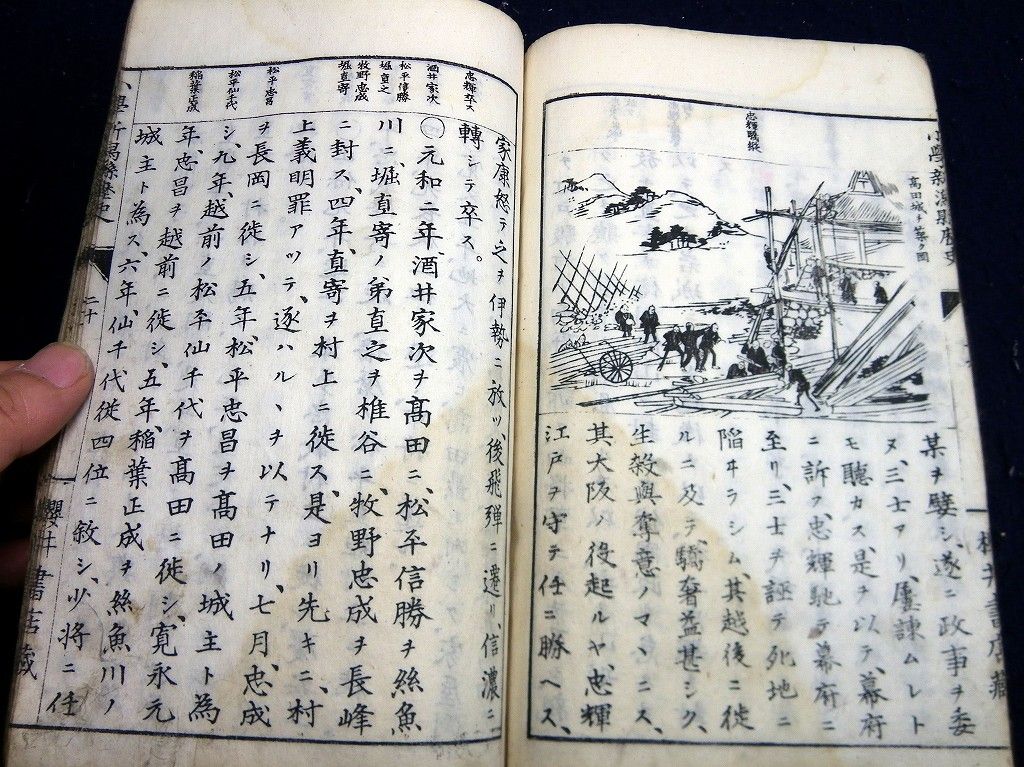 小學新潟縣歷史
高田城ヲ築ク圖
忠輝驕縱
某ヲ嬖シ、遂ニ政事ヲ委
ヌ、三士アリ、屢諫ムレト
モ聽カス、是ヲ以テ、幕府
ニ訴フ、忠輝馳テ幕府ニ
至リ、三士ヲ誣テ死地ニ
陷ヰラシム、其越後ニ徙
ルニ及テ、驕奢益甚シク、
生殺與奪意ノマヽニス、
其大阪ノ役起ルヤ、忠輝
江戸ヲ守テ任ニ勝ヘス、
櫻井書店藏
忠輝卒ス
酒井家次
松平信勝
堀直之
牧野忠成
堀直寄
松平忠昌
松平仙千代
稲葉正成
家康怒テ之ヲ伊勢ニ放ツ、後飛彈ニ遷リ、信濃ニ
轉シテ卒ス。
○元和二年、酒井家次ヲ髙田ニ、松平信勝ヲ絲魚
川ニ、堀直寄ノ弟直之ヲ椎谷ニ、牧野忠成ヲ長峰
ニ封ス、四年、直寄ヲ村上ニ徙ス、是ヨリ先キニ、村
上義明罪アツテ、逐ハルヽヲ以テナリ、七月、忠成
ヲ長岡ニ徙シ、五年、松平忠昌ヲ髙田ノ城主ト為
シ、九年、越前ノ松平仙千代ヲ髙田ニ徙シ、寛永元
年、忠昌ヲ越前ニ徙シ、五年、稲葉正成ヲ絲魚川ノ
城主ト為ス、六年、仙千代従四位ニ敘シ、少将ニ任
小學新潟縣歷史
二十
櫻井書店藏